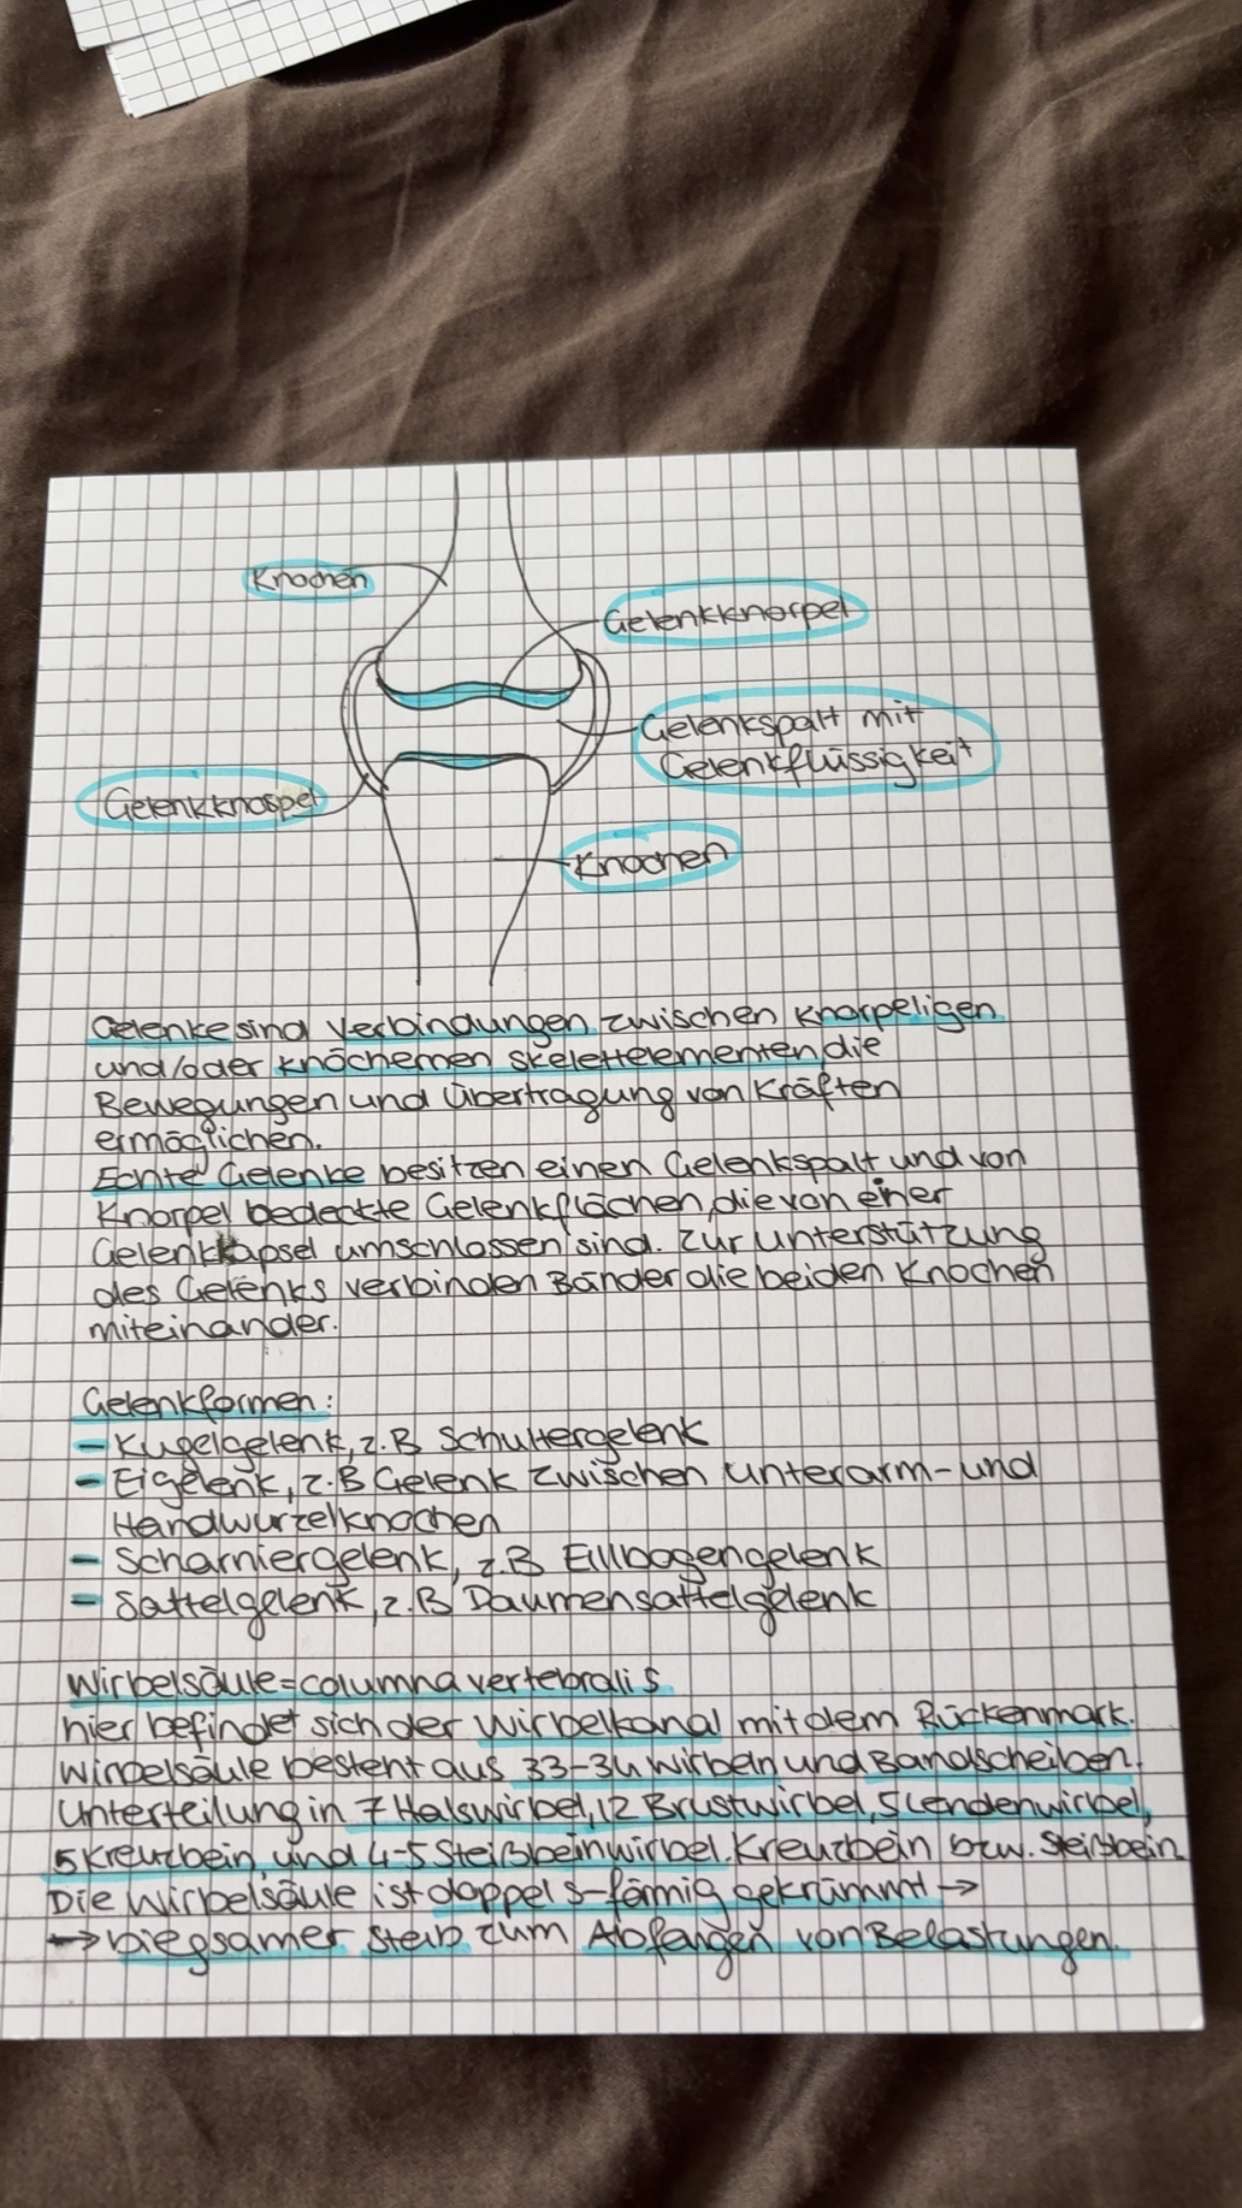 Knochen
Gelenkknorpel
Gelenkspalt mit
Gelenkflüssigkeit
Gelenkknospel
Knochen
Gelenke sind Verbindungen zwischen knorpeligen
und/oder knöchernen Skelettelementen, die
Bewegungen und Übertragung von Kräften
ermöglichen.
Echte Gelenke besitzen einen Gelenkspalt und von
Knorpel bedeckte Gelenkflächen, die von einer
Gelenkkapsel umschlossen sind. Zur Unterstützung
des Gelenks verbinden Bänder die beiden Knochen
miteinander.
Gelenkformen:
- Kugelgelenk, z.B Schultergelenk
- Eigelenk, z.B Gelenk zwischen Unterarm- und
Handwurzelknochen
- Scharniergelenk, z.B Ellbogengelenk
- Sattelgelenk, z.B Daumensattelgelenk
Wirbelsäule = columna vertebralis
hier befindet sich der Wirbelkanal mit dem Rückenmark.
Wirbelsäule besteht aus 33-34 Wirbeln und Bandscheiben.
Unterteilung in 7 Halswirbel, 12 Brustwirbel, 5 Lendenwirbel,
5 Kreuzbein, und 4-5 Steißbeinwirbel. Kreuzbein bzw. Steißbein.
Die Wirbelsäule ist doppel s-förmig gekrümmt →
→ biegsamer Stab zum Abfangen von Belastungen.